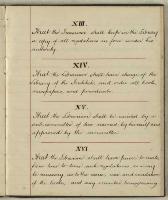 XIII.
That the Treasurer shall keep in the Library
a copy of all regulations in force under his
authority.
XIV.
That the Librarian shall have charge of the
Library of the Institute and order all books,
newspapers, and periodicals.
XV.
That the Librarian shall be assisted by a
sub-committee of two named by himself and
approved by the committee.
XVI
That the Librarian shall have power to make
from time to time such regulations as may
be necessary as to the issue, use and circulation
of the books, and any member transgressing